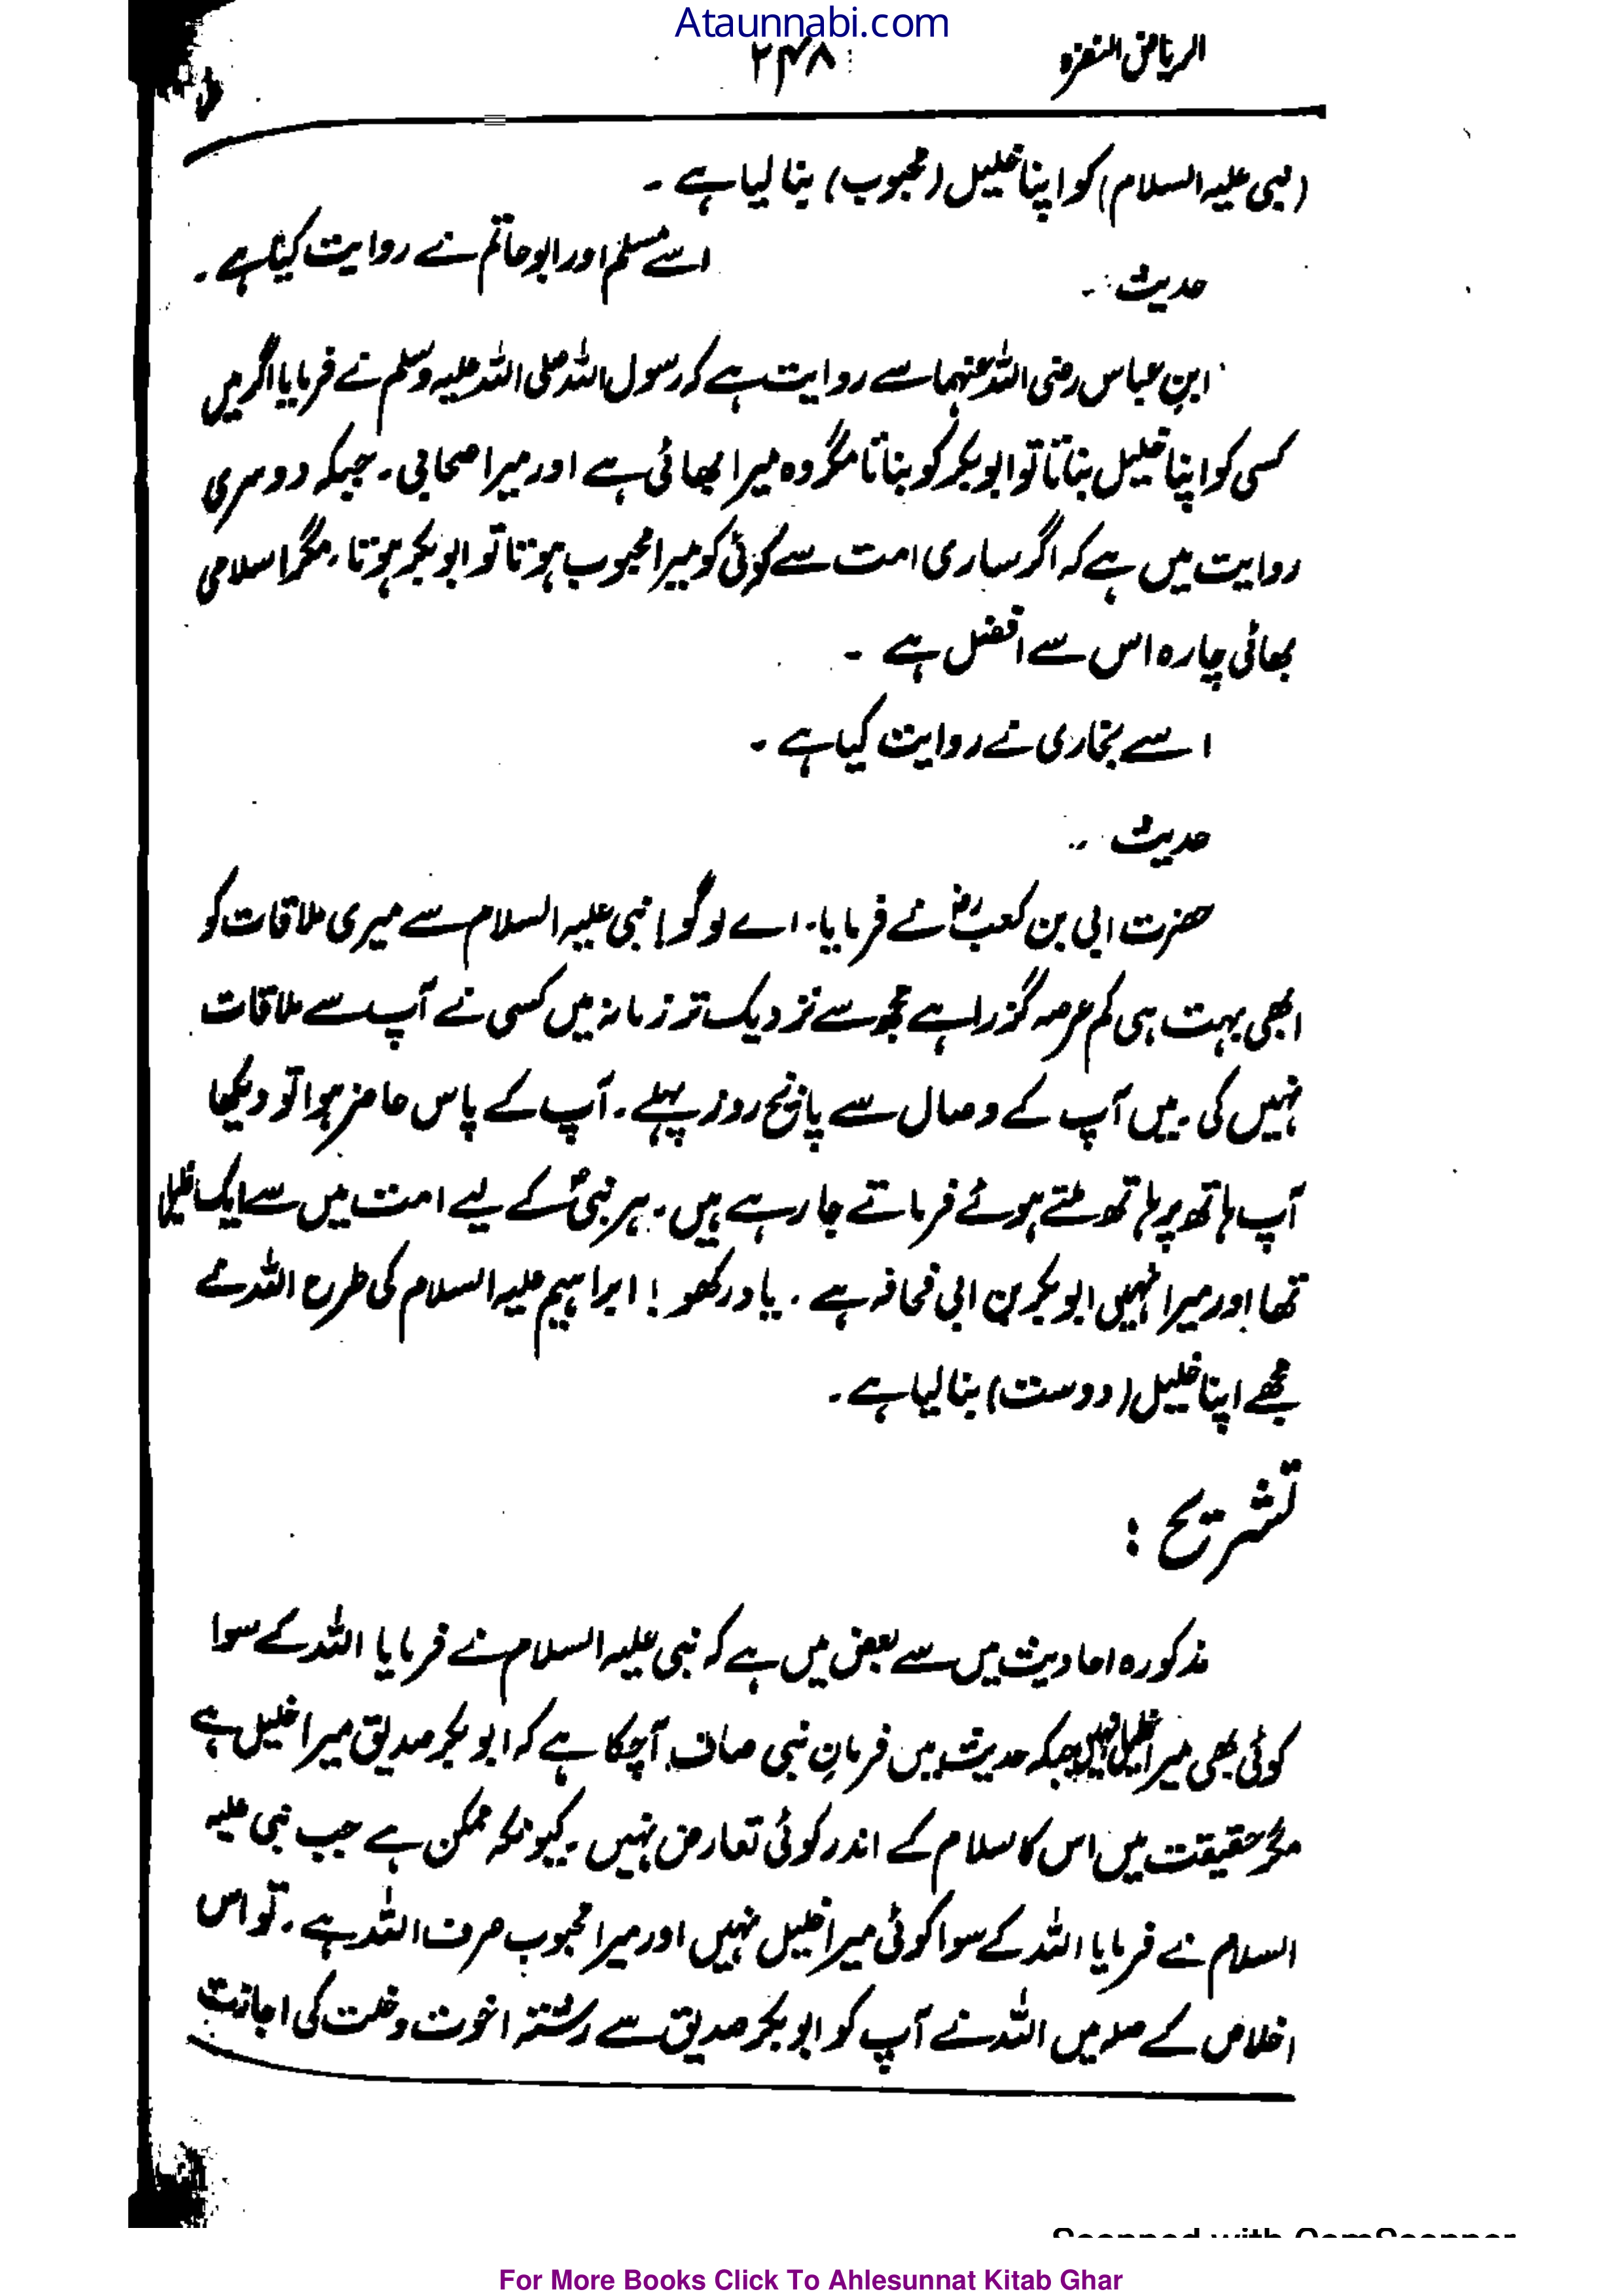 Ataunnabi.com
الریاض النضرہ ۲۴۸
(نبی علیہ السلام) کو اپنا خلیل (محبوب) بنا لیا ہے ۔
اسے مسلم اور ابو حاتم نے روایت کیا ہے ۔
حدیث ۔
ابن عباس رضی اللہ عنہما سے روایت ہے کہ رسول اللہ صلی اللہ علیہ وسلم نے فرمایا اگر میں
کسی کو اپنا خلیل بناتا تو ابو بکر کو بناتا مگر وہ میرا بھائی ہے اور میرا صحابی ۔ جبکہ دوسری
روایت میں ہے کہ اگر ساری امت سے کوئی کو میرا محبوب ہوتا تو ابو بکر ہوتا ، مگر اسلامی
بھائی چارہ اس سے افضل ہے ۔
اسے بخاری نے روایت کیا ہے ۔
حدیث ۔
حضرت ابی بن کعب رضؓ نے فرمایا ۔ اے لوگو ! نبی علیہ السلام سے میری ملاقات کو
ابھی بہت ہی کم عرصہ گزرا ہے مجھ سے نزدیک تر زمانہ میں کسی نے آپ سے ملاقات
نہیں کی ۔ میں آپ کے وصال سے پانچ روز پہلے ۔ آپ کے پاس حاضر ہوا تو دیکھا
آپ ہاتھ پر ہاتھ ملتے ہوئے فرماتے جا رہے ہیں ۔ ہر نبی کے لیے امت میں سے ایک خلیل
تھا اور میرا نہیں ابو بکر بن ابی قحافہ ہے ۔ یاد رکھو ! ابراہیم علیہ السلام کی طرح اللہ نے
مجھے اپنا خلیل (دوست) بنا لیا ہے ۔
تشریح :
مذکورہ احادیث میں سے بعض میں ہے کہ نبی علیہ السلام نے فرمایا اللہ کے سوا
کوئی بھی میرا خلیل نہیں جبکہ حدیث میں فرمانِ نبی صاف آچکا ہے کہ ابو بکر صدیق میرا خلیل ہے
مگر حقیقت میں اس کا سلام کے اندر کوئی تعارض نہیں ۔ کیونکہ ممکن ہے جب نبی علیہ
السلام نے فرمایا اللہ کے سوا کوئی میرا خلیل نہیں اور میرا محبوب صرف اللہ ہے ۔ تو اس
اخلاص کے صلہ میں اللہ نے آپ کو ابو بکر صدیق سے رشتہ اخوت و خلت کی اجازت
Scanned with CamScanner
For More Books Click To Ahlesunnat Kitab Ghar